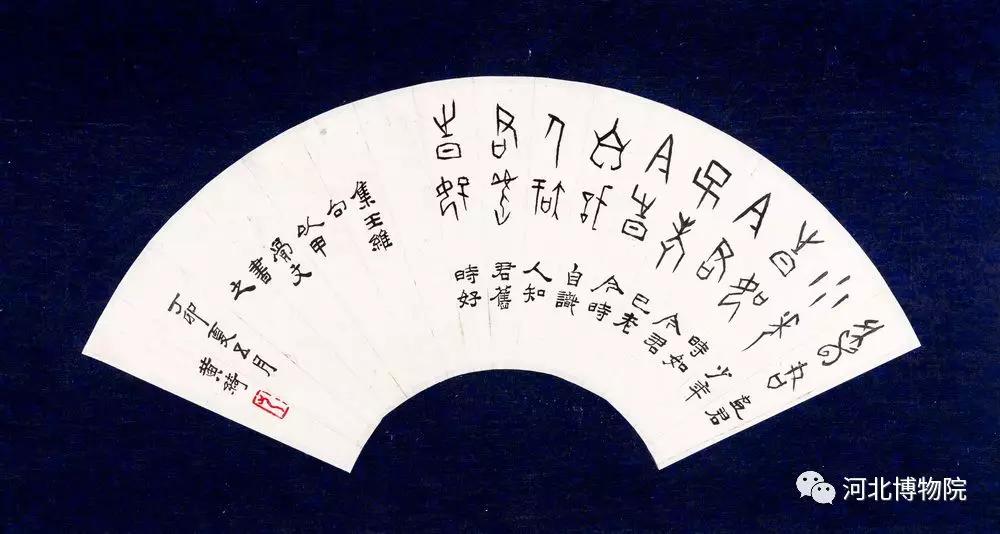 畫君
少年
時如
今君
已老
今時
自識
人知
君舊
時好
集王維
句
以甲
骨文
書
之
丁卯夏五月
黄綺
河北博物院